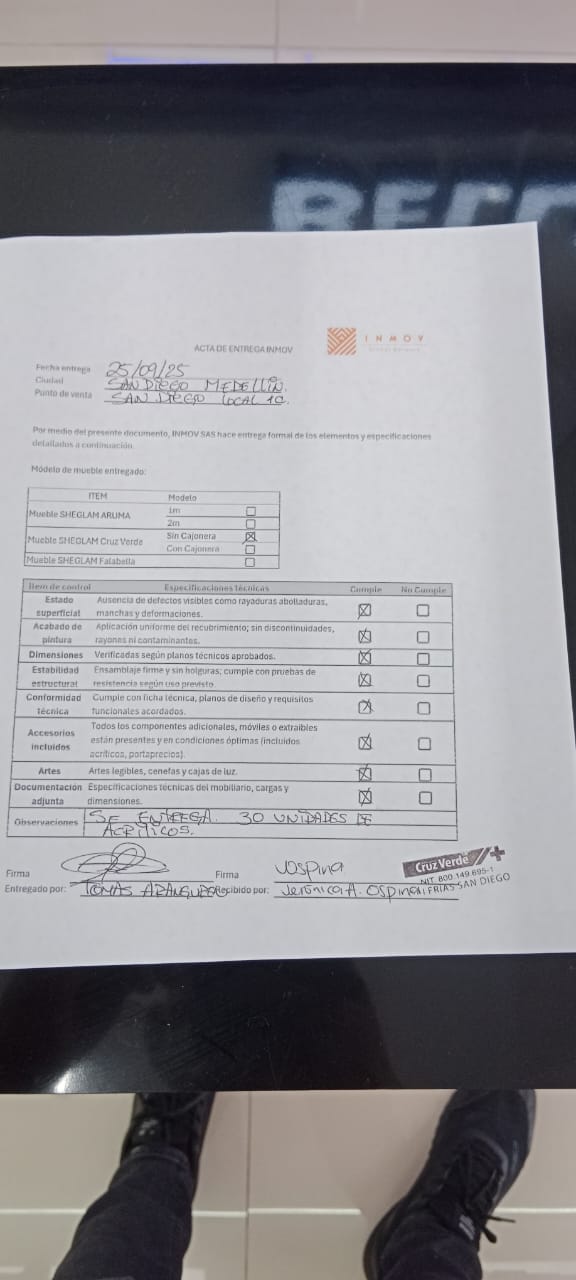 BECC
INMOV
ACTA DE ENTREGA INMOV
Fecha entrega 25/09/25
Ciudad SAN DIEGO MEDELLIN.
Punto de venta SAN DIEGO LOCAL 10.
Por medio del presente documento, INMOV SAS hace entrega formal de los elementos y especificaciones
detallados a continuación
Modelo de mueble entregado:
ITEM Modelo
Mueble SHEGLAM ARUMA 1m
2m
Mueble SHEGLAM Cruz Verde Sin Cajonera
Con Cajonera
Mueble SHEGLAM Falabella
Ítem de control Especificaciones técnicas Cumple No Cumple
Estado superficial Ausencia de defectos visibles como rayaduras abolladuras,
manchas y deformaciones.
Acabado de pintura Aplicación uniforme del recubrimiento; sin discontinuidades,
rayones ni contaminantes.
Dimensiones Verificadas según planos técnicos aprobados.
Estabilidad estructural Ensamblaje firme y sin holguras; cumple con pruebas de
resistencia según uso previsto.
Conformidad técnica Cumple con ficha técnica, planos de diseño y requisitos
funcionales acordados.
Accesorios incluidos Todos los componentes adicionales, móviles o extraíbles
están presentes y en condiciones óptimas (incluidos
acrílicos, portaprecios).
Artes Artes legibles, cenefas y cajas de luz.
Documentación adjunta Especificaciones técnicas del mobiliario, cargas y
dimensiones.
Observaciones SE ENTREGA. 30 UNIDADES DE
ACRILICOS.
Firma Firma JOspina
Entregado por: TOMAS ARANGUREN Recibido por: Jerónica A. Ospina
Cruz Verde
NIT. 800.149.695-1
FRIAS SAN DIEGO